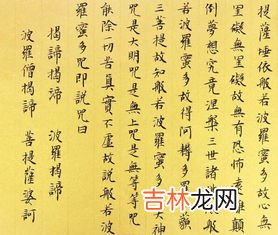 提薩埵依般若波羅蜜多故心無
罣礙無罣礙故無有恐怖遠離顛
倒夢想究竟涅槃三世諸
若波羅蜜多故得阿耨多羅
三菩提故知般若波羅蜜多是大神
咒是大明咒是無上咒是無等等咒
能除一切苦真實不虛故說般若波
羅蜜多咒即說咒曰
揭諦揭諦 波羅揭諦
波羅僧揭諦 菩提薩婆訶
吉林龙网